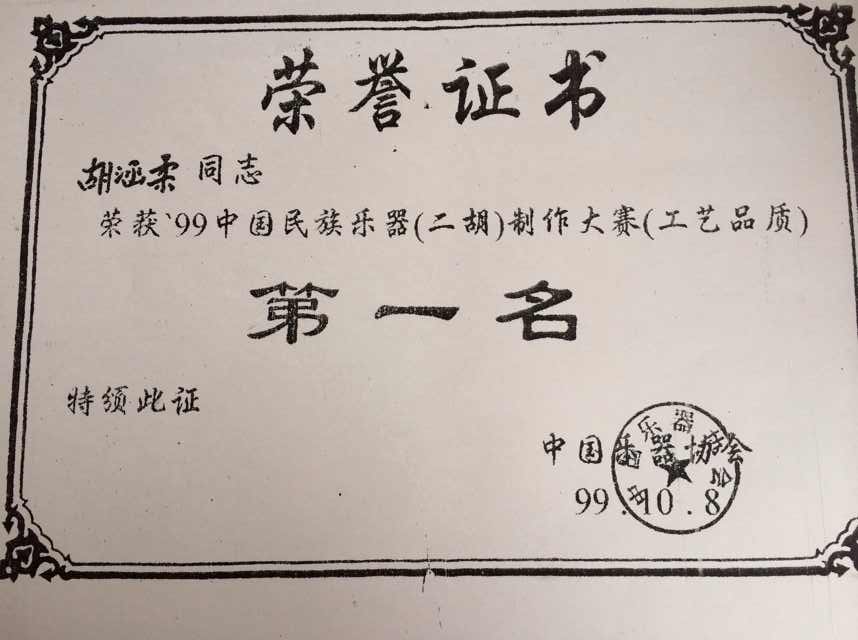 荣誉证书
胡涵柔 同志
荣获'99中国民族乐器(二胡)制作大赛(工艺品质)
第一名
特颁此证
中国乐器协会
中国乐器协会
99.10.8